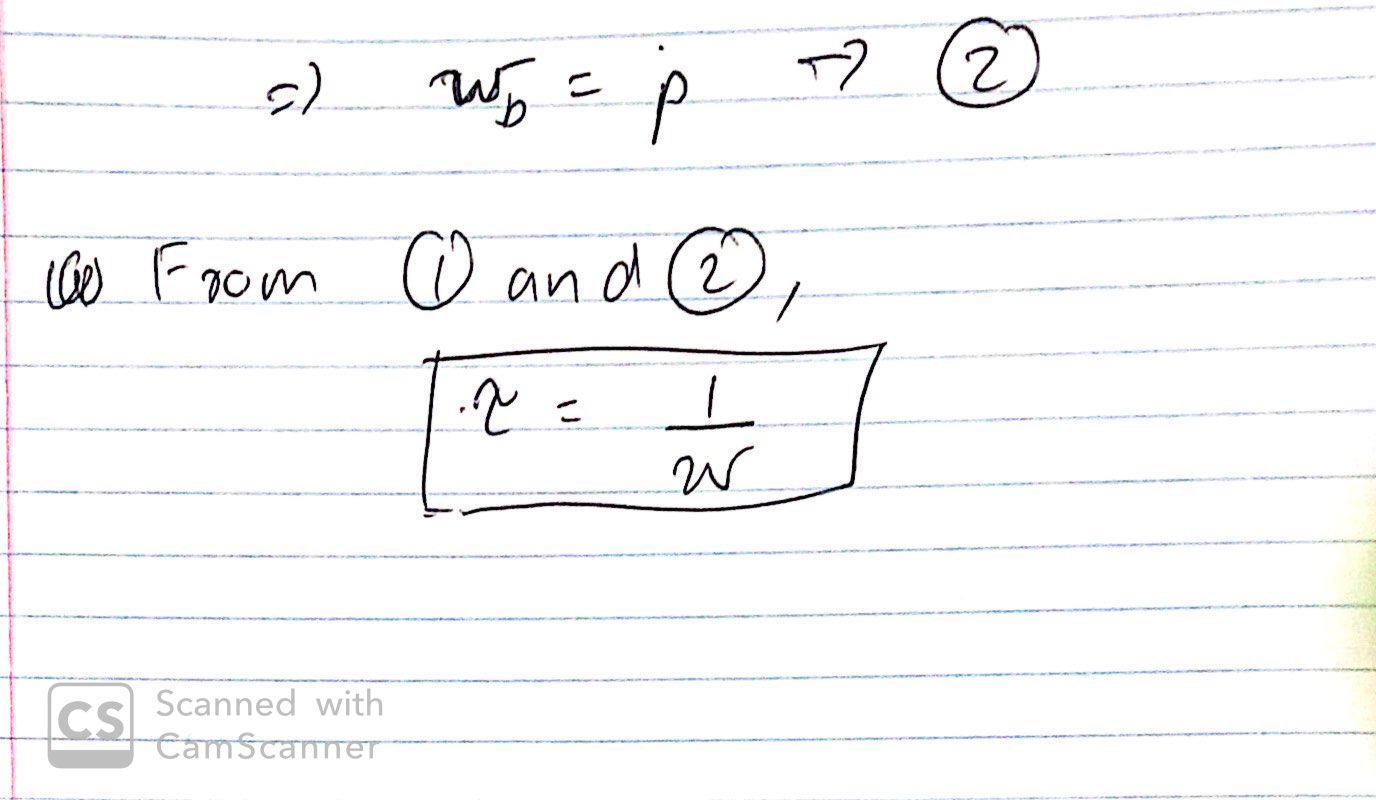 ⇒ w_b = p → ②
From ① and ②,
τ = 1/w
CS Scanned with
CamScanner